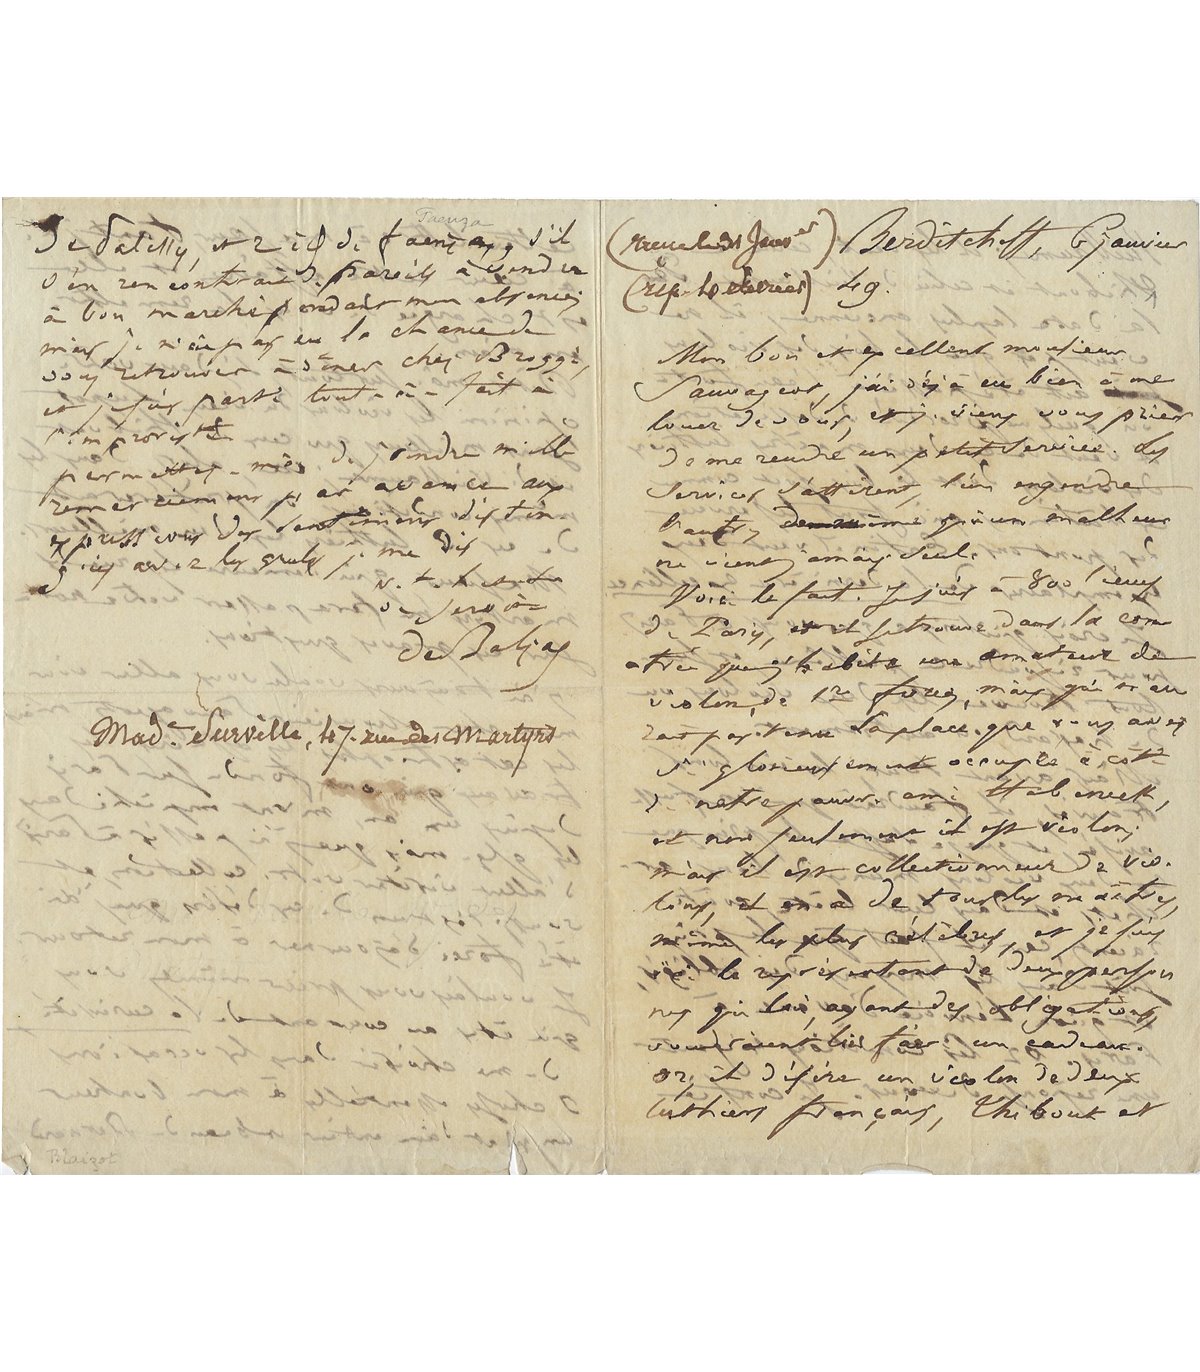 Berditcheff, 6 janvier
49.
Mon bon et excellent monsieur
Sauvageot, j'ai déjà eu bien à me
louer de vous, et je viens vous prier
de me rendre un petit service. Les
services s'attirent, l'un engendre
l'autre, de même qu'un malheur
ne vient jamais seul.
Voici le fait. Je suis à 800 lieues
de Paris, et il se trouve dans la con
trée que j'habite un amateur de
violon, de 1re force, mais qui n'au
rait pas tenu la place que vous avez
si glorieusement occupée à côté
de notre pauvre ami Habeneck,
et non seulement il est violon,
mais il est collectionneur de vio-
lons, et en a de tous les maîtres,
même les plus célèbres, et je suis
ici le représentant de deux person
nes qui lui, ayant des obligations,
voudraient lui faire un cadeau.
or, il désire un violon de deux
luthiers français, Thibout et
de Palissy, et 2 id de faenza, s'il
s'en rencontrait de pareils à vendre
à bon marché pendant mon absence,
mais je n'ai pas eu la chance de
vous retrouver à dîner chez Broggi,
et je suis parti tout-à-fait à
l'improviste
permettez-moi de joindre mille
remerciemens par avance aux
expressions des sentimens distin-
gués avec lesquels je me dis
de Balzac
Made Surville, 47. rue des Martyrs
Faenza
Blaizot